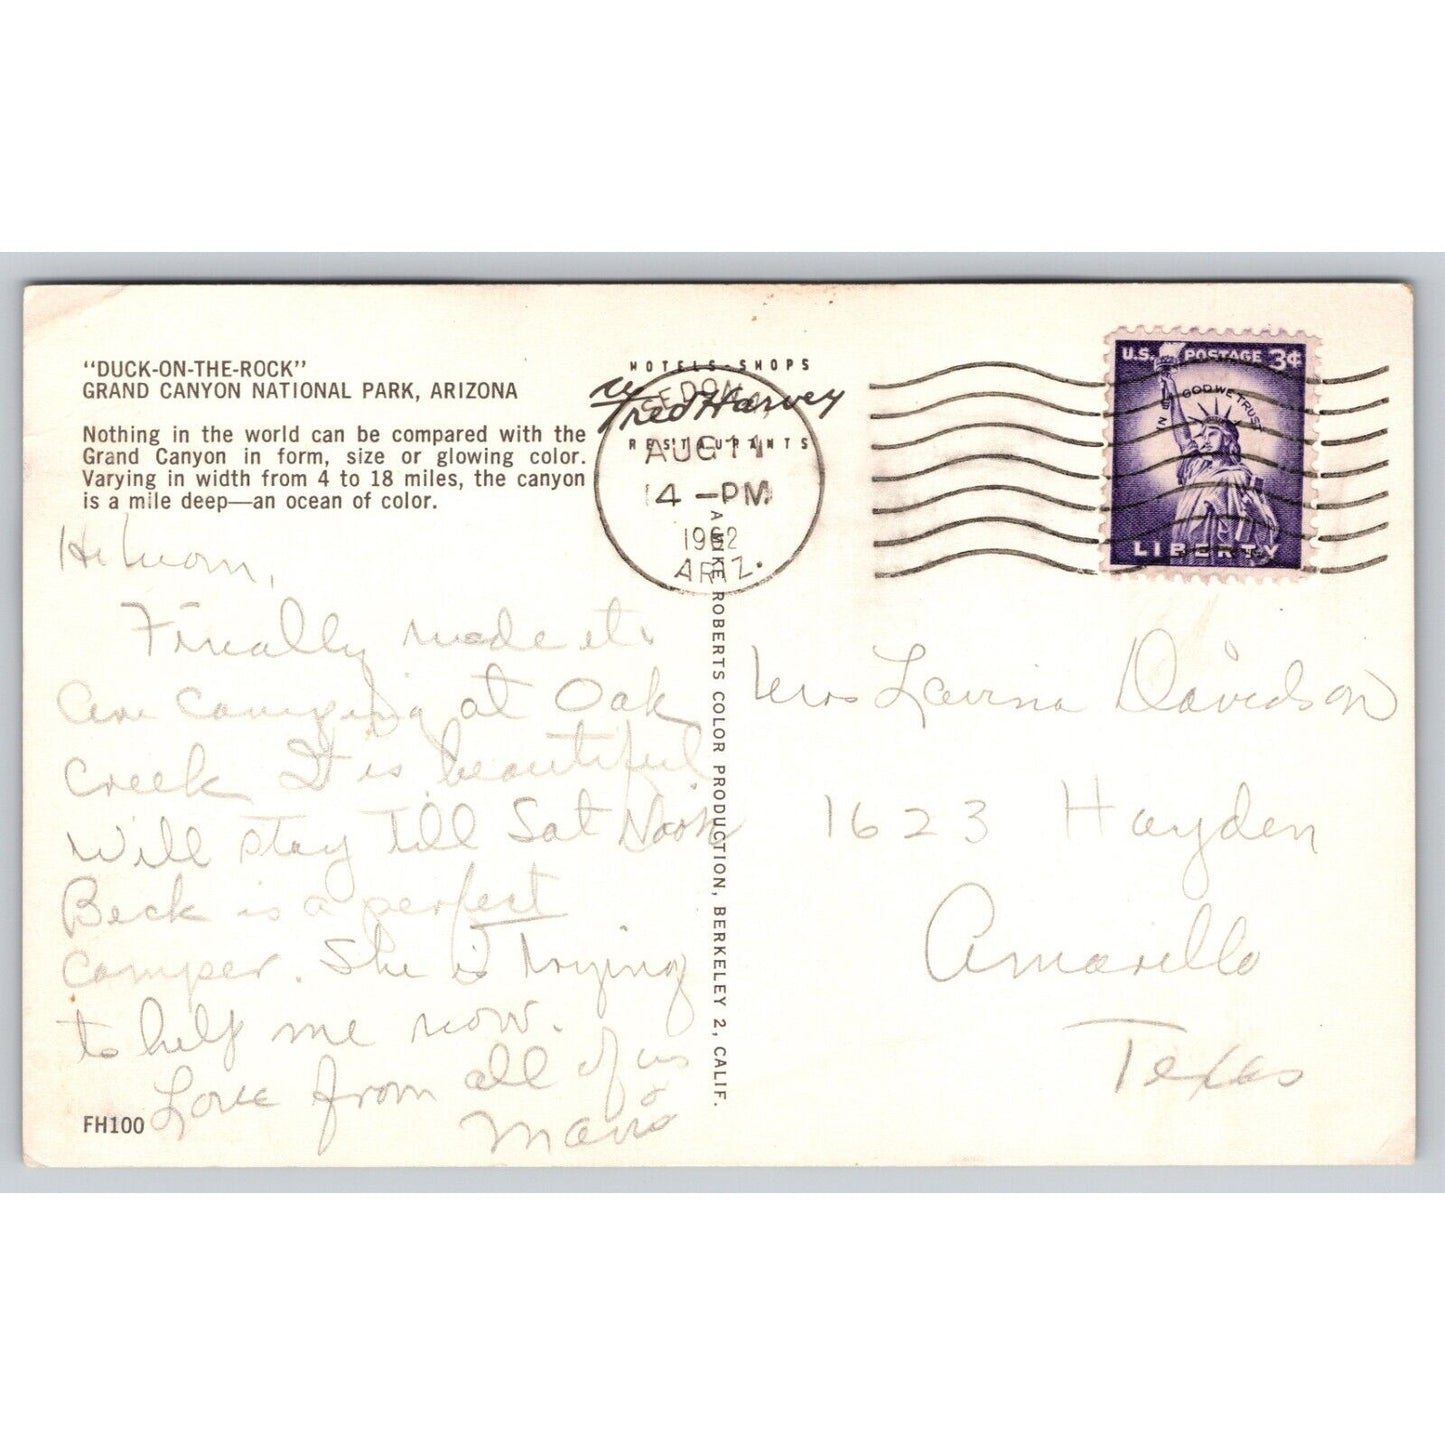 "DUCK-ON-THE-ROCK"
GRAND CANYON NATIONAL PARK, ARIZONA
Nothing in the world can be compared with the
Grand Canyon in form, size or glowing color.
Varying in width from 4 to 18 miles, the canyon
is a mile deep—an ocean of color.
Hi Mom,
Finally made it.
Are camping at Oak
Creek It is beautiful
Will stay till Sat Noon
Beck is a perfect
camper. She is trying
to help me now.
Love from all of us
FH100
HOTELS-SHOPS
Fred Harvey
RESTAURANTS
SEDONA,
AUG 11
4-PM
1962
ARIZ.
A MIKE ROBERTS COLOR PRODUCTION, BERKELEY 2, CALIF.
U.S. POSTAGE 3¢
IN GOD WE TRUST
LIBERTY
Mrs Lavina Davidson
1623 Hayden
Amarillo
Texas